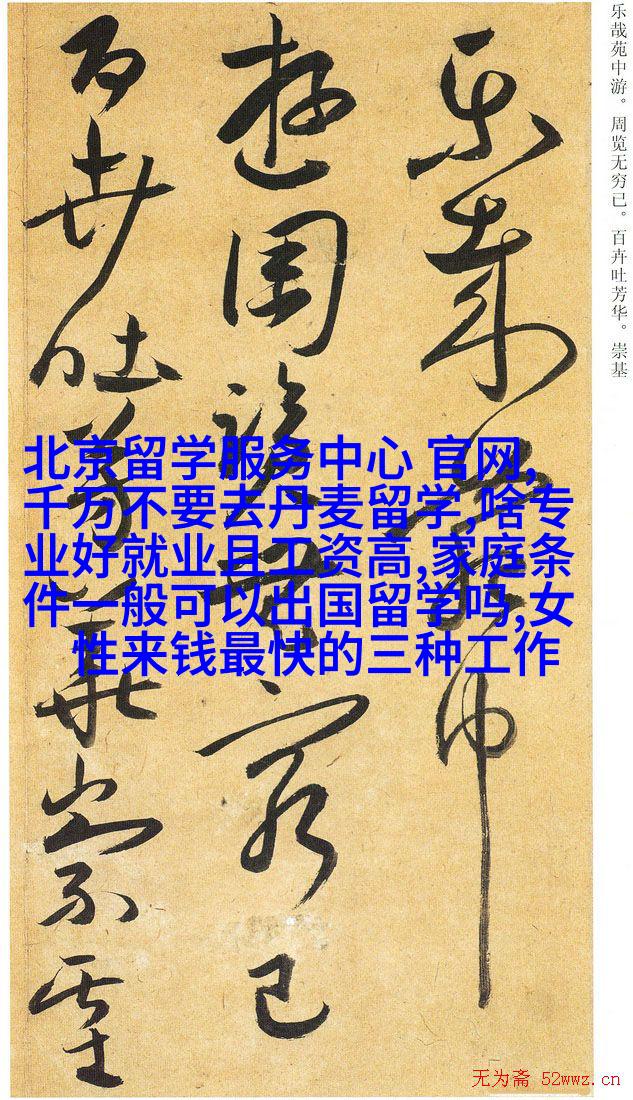 乐哉苑中游。周览无穷已。百卉吐芳华。崇基
樂哉苑中
遊周覽無窮已
百卉吐芳華崇基
北京留学服务中心 官网,
千万不要去丹麦留学,啥专
业好就业且工资高,家庭条
件一般可以出国留学吗,女
性来钱最快的三种工作
无为斋 52wwz.cn